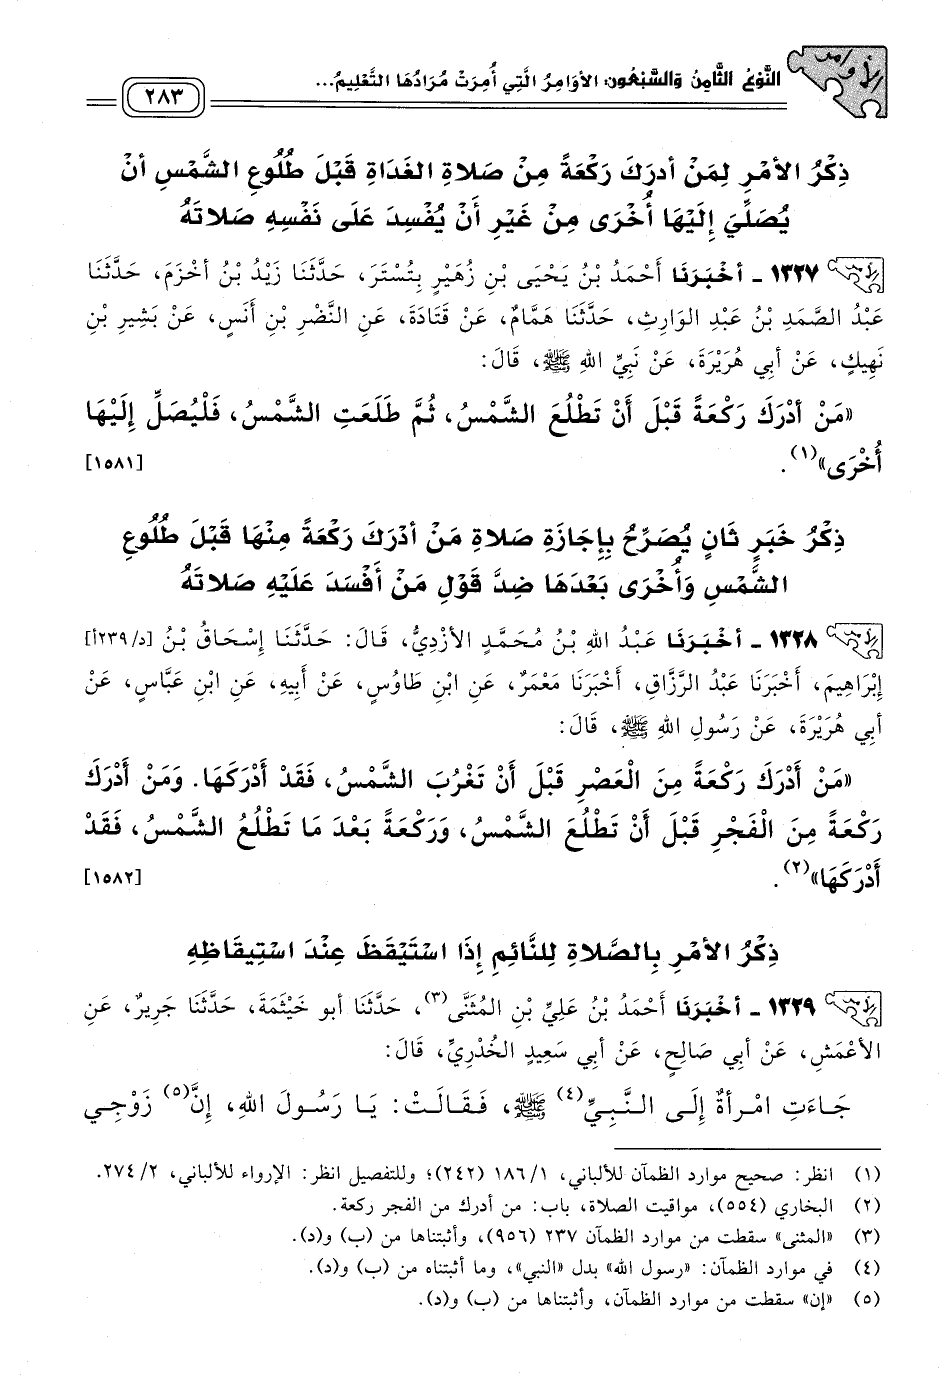 الأوامر
النَّوْعُ الثَّامِنُ وَالسَّبْعُون: الأَوَامِرُ الَّتِي أُمِرَتْ مُرَادُهَا التَّعْلِيمُ...
٢٨٣
ذِكْرُ الأَمْرِ لِمَنْ أدرَكَ رَكْعَةً مِنْ صَلَاةِ الغَدَاةِ قَبْلَ طُلُوعِ الشَّمْسِ أنْ
يُصَلِّيَ إِلَيْهَا أُخْرَى مِنْ غَيْرِ أَنْ يُفْسِدَ عَلَى نَفْسِهِ صَلَاتَهُ
١٣٢٧ - أَخْبَرَنَا أَحْمَدُ بْنُ يَحْيَى بْنِ زُهَيْرٍ بِتُسْتَرَ، حَدَّثَنَا زَيْدُ بْنُ أخْزَمَ، حَدَّثَنَا
عَبْدُ الصَّمَدِ بْنُ عَبْدِ الوَارِثِ، حَدَّثَنَا هَمَّامٌ، عَنْ قَتَادَةَ، عَنِ النَّضْرِ بْنِ أَنَسٍ، عَنْ بَشِيرِ بْنِ
نَهِيكٍ، عَنْ أبي هُرَيْرَةَ، عَنْ نَبِيِّ اللهِ ﷺ، قَالَ:
«مَنْ أدْرَكَ رَكْعَةً قَبْلَ أَنْ تَطْلُعَ الشَّمْسُ، ثُمَّ طَلَعَتِ الشَّمْسُ، فَلْيُصَلِّ إِلَيْهَا
أُخْرَى»(١). [١٥٨١]
ذِكْرُ خَبَرٍ ثَانٍ يُصَرِّحُ بِإِجَازَةِ صَلَاةِ مَنْ أدْرَكَ رَكْعَةً مِنْهَا قَبْلَ طُلُوعِ
الشَّمْسِ وَأُخْرَى بَعْدَهَا ضِدَّ قَوْلِ مَنْ أَفْسَدَ عَلَيْهِ صَلَاتَهُ
١٣٢٨ - أَخْبَرَنَا عَبْدُ اللهِ بْنُ مُحَمَّدٍ الأَزْدِيُّ، قَالَ: حَدَّثَنَا إِسْحَاقُ بْنُ [د/٢٣٩أ]
إِبْرَاهِيمَ، أَخْبَرَنَا عَبْدُ الرَّزَّاقِ، أَخْبَرَنَا مَعْمَرٌ، عَنِ ابْنِ طَاوُسٍ، عَنْ أَبِيهِ، عَنِ ابْنِ عَبَّاسٍ، عَنْ
أبي هُرَيْرَةَ، عَنْ رَسُولِ اللهِ ﷺ، قَالَ:
«مَنْ أَدْرَكَ رَكْعَةً مِنَ الْعَصْرِ قَبْلَ أَنْ تَغْرُبَ الشَّمْسُ، فَقَدْ أَدْرَكَهَا. وَمَنْ أَدْرَكَ
رَكْعَةً مِنَ الْفَجْرِ قَبْلَ أَنْ تَطْلُعَ الشَّمْسُ، وَرَكْعَةً بَعْدَ مَا تَطْلُعُ الشَّمْسُ، فَقَدْ
أَدْرَكَهَا»(٢). [١٥٨٢]
ذِكْرُ الأَمْرِ بِالصَّلَاةِ لِلنَّائِمِ إِذَا اسْتَيْقَظَ عِنْدَ اسْتِيقَاظِهِ
١٣٢٩ - أَخْبَرَنَا أَحْمَدُ بْنُ عَلِيِّ بْنِ المُثَنَّى(٣)، حَدَّثَنَا أبو خَيْثَمَةَ، حَدَّثَنَا جَرِيرٌ، عَنِ
الأَعْمَشِ، عَنْ أبي صَالِحٍ، عَنْ أبي سَعِيدٍ الخُدْرِيِّ، قَالَ:
جَاءَتِ امْرأةٌ إِلَى النَّبِيِّ(٤) ﷺ، فَقَالَتْ: يَا رَسُولَ اللهِ، إِنَّ(٥) زَوْجِي
(١) انظر: صحيح موارد الظمآن للألباني، ١/ ١٨٦ (٢٤٢)؛ وللتفصيل انظر: الإرواء للألباني، ٢/ ٢٧٤.
(٢) البخاري (٥٥٤)، مواقيت الصلاة، باب: من أدرك من الفجر ركعة.
(٣) «المثنى» سقطت من موارد الظمآن ٢٣٧ (٩٥٦)، وأثبتناها من (ب) و(د).
(٤) في موارد الظمآن: «رسول الله» بدل «النبي»، وما أثبتناه من (ب) و(د).
(٥) «إن» سقطت من موارد الظمآن، وأثبتناها من (ب) و(د).